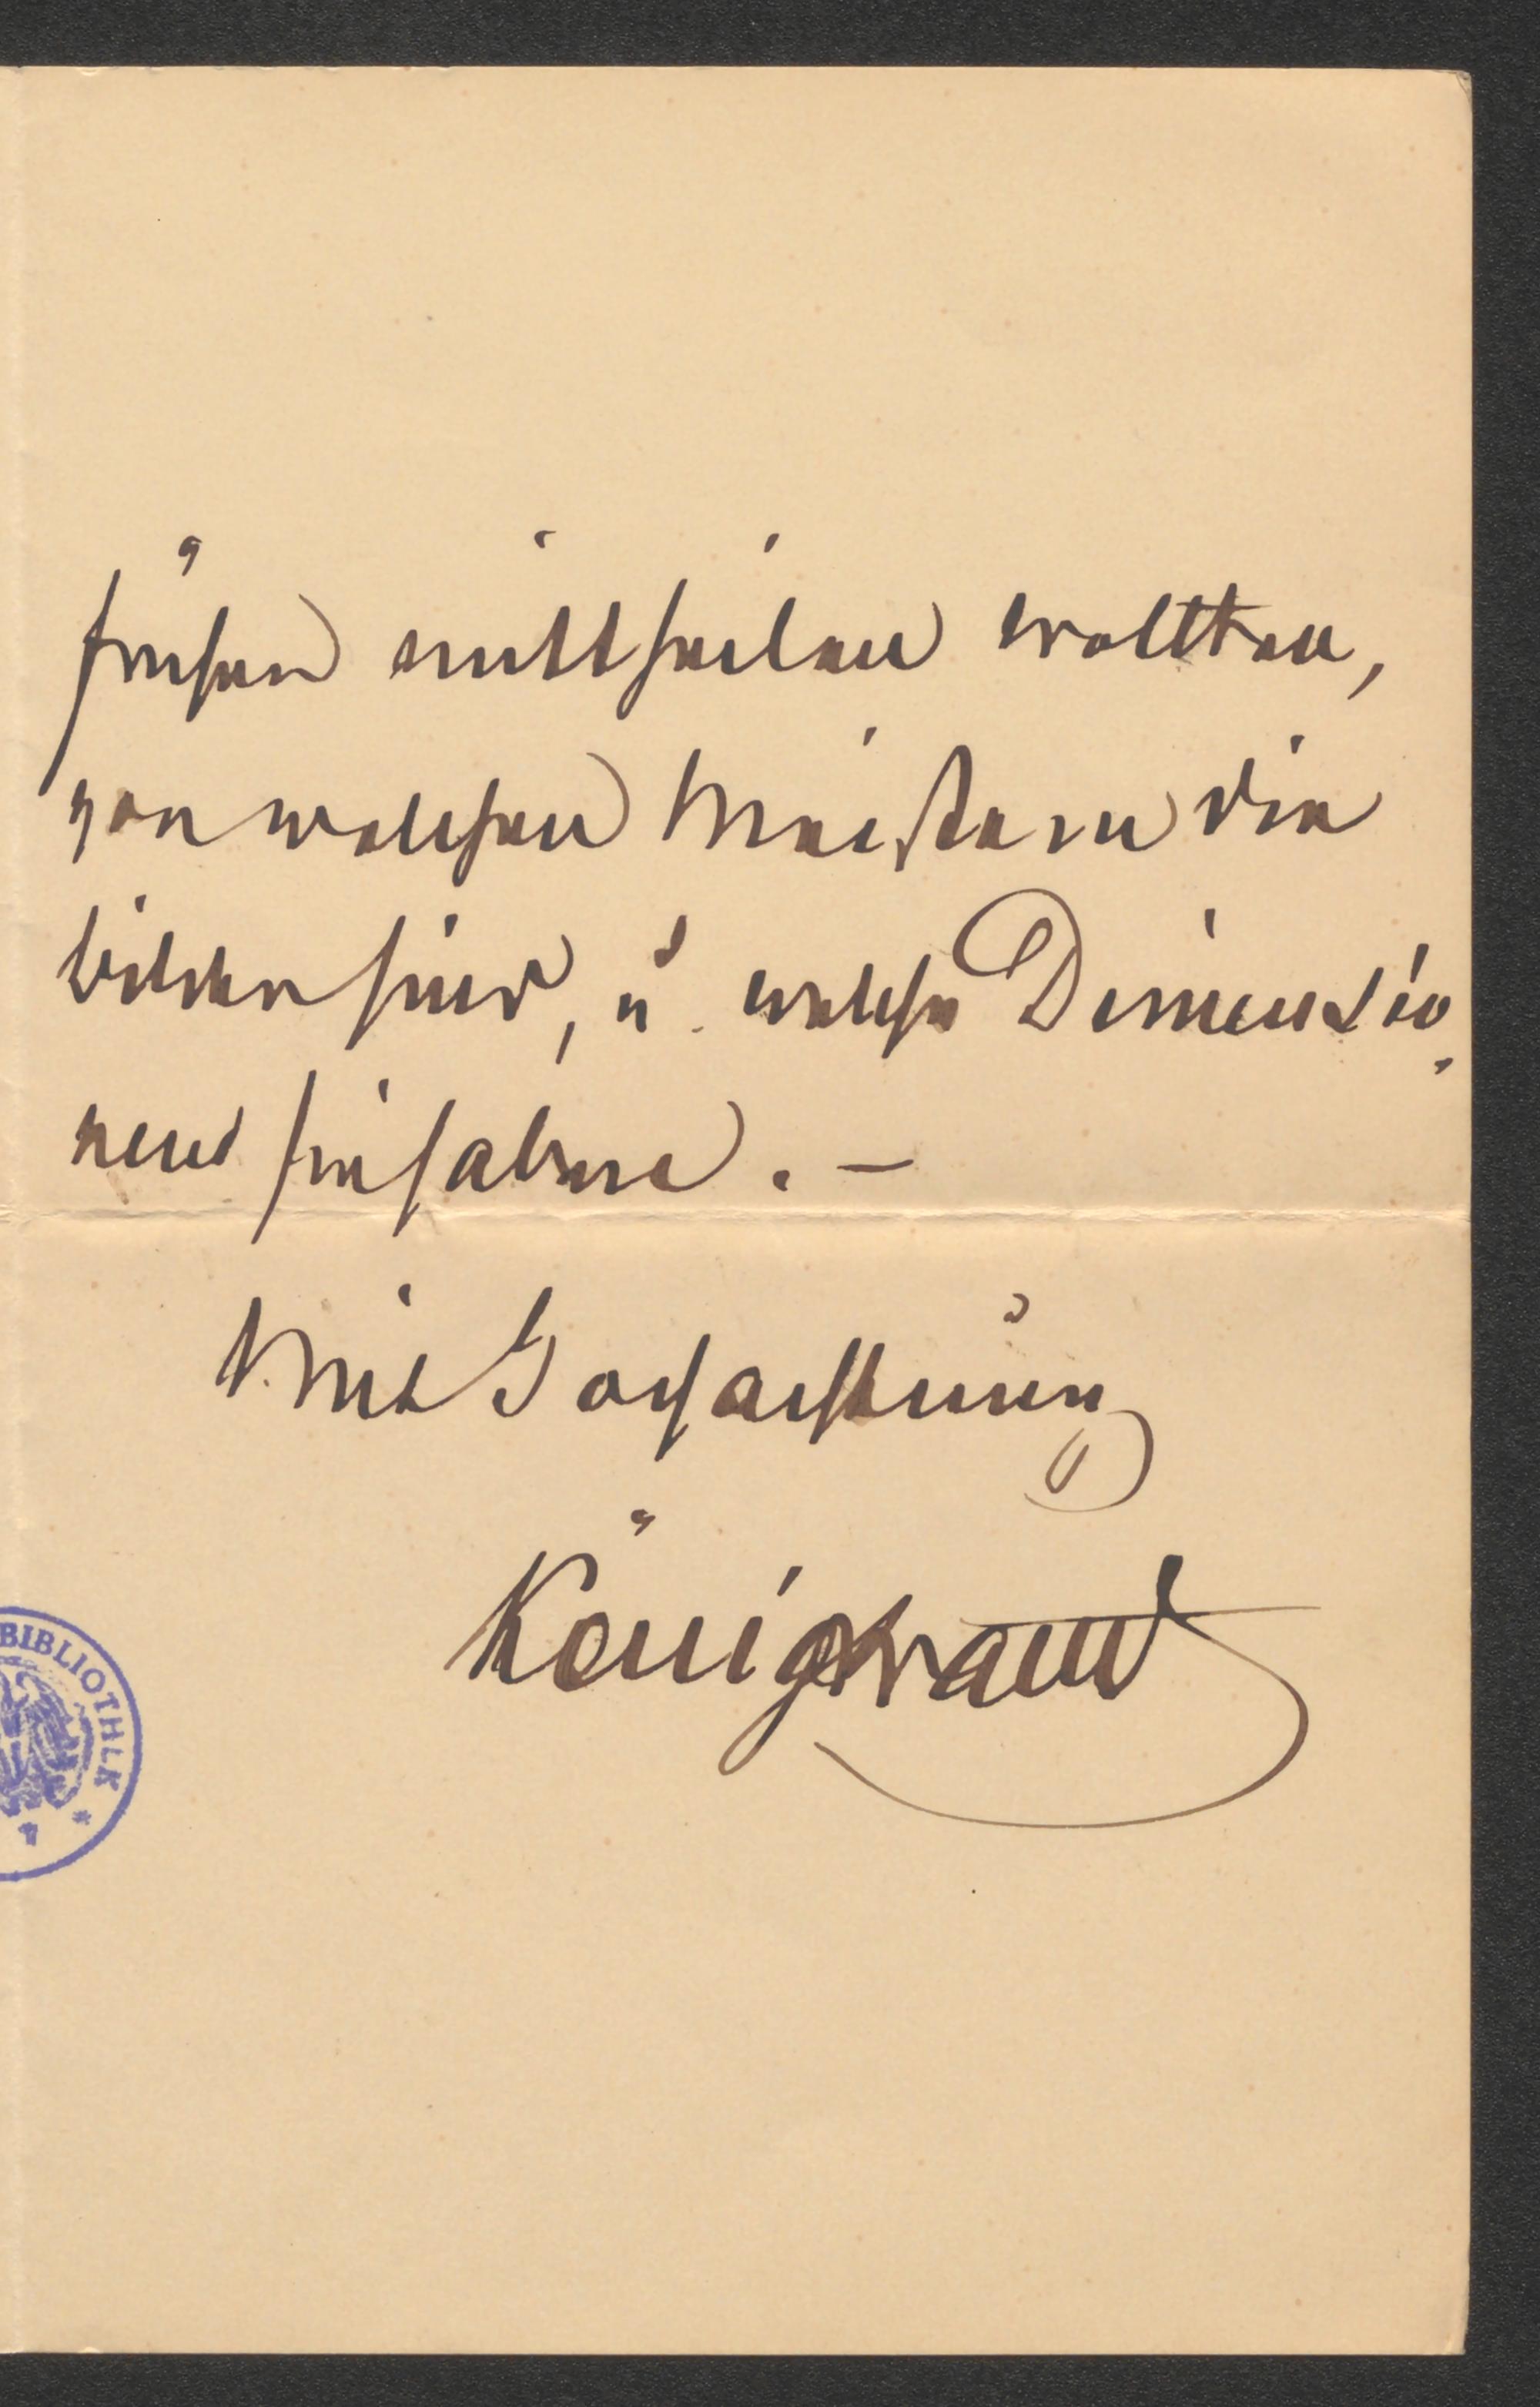 früher mittheilen wollten,
von welchen Meistern die
Bilder sind, u. welche Dimensio-
nen sie haben. –
Mit Hochachtung
Königbrand
BIBLIOTHEK